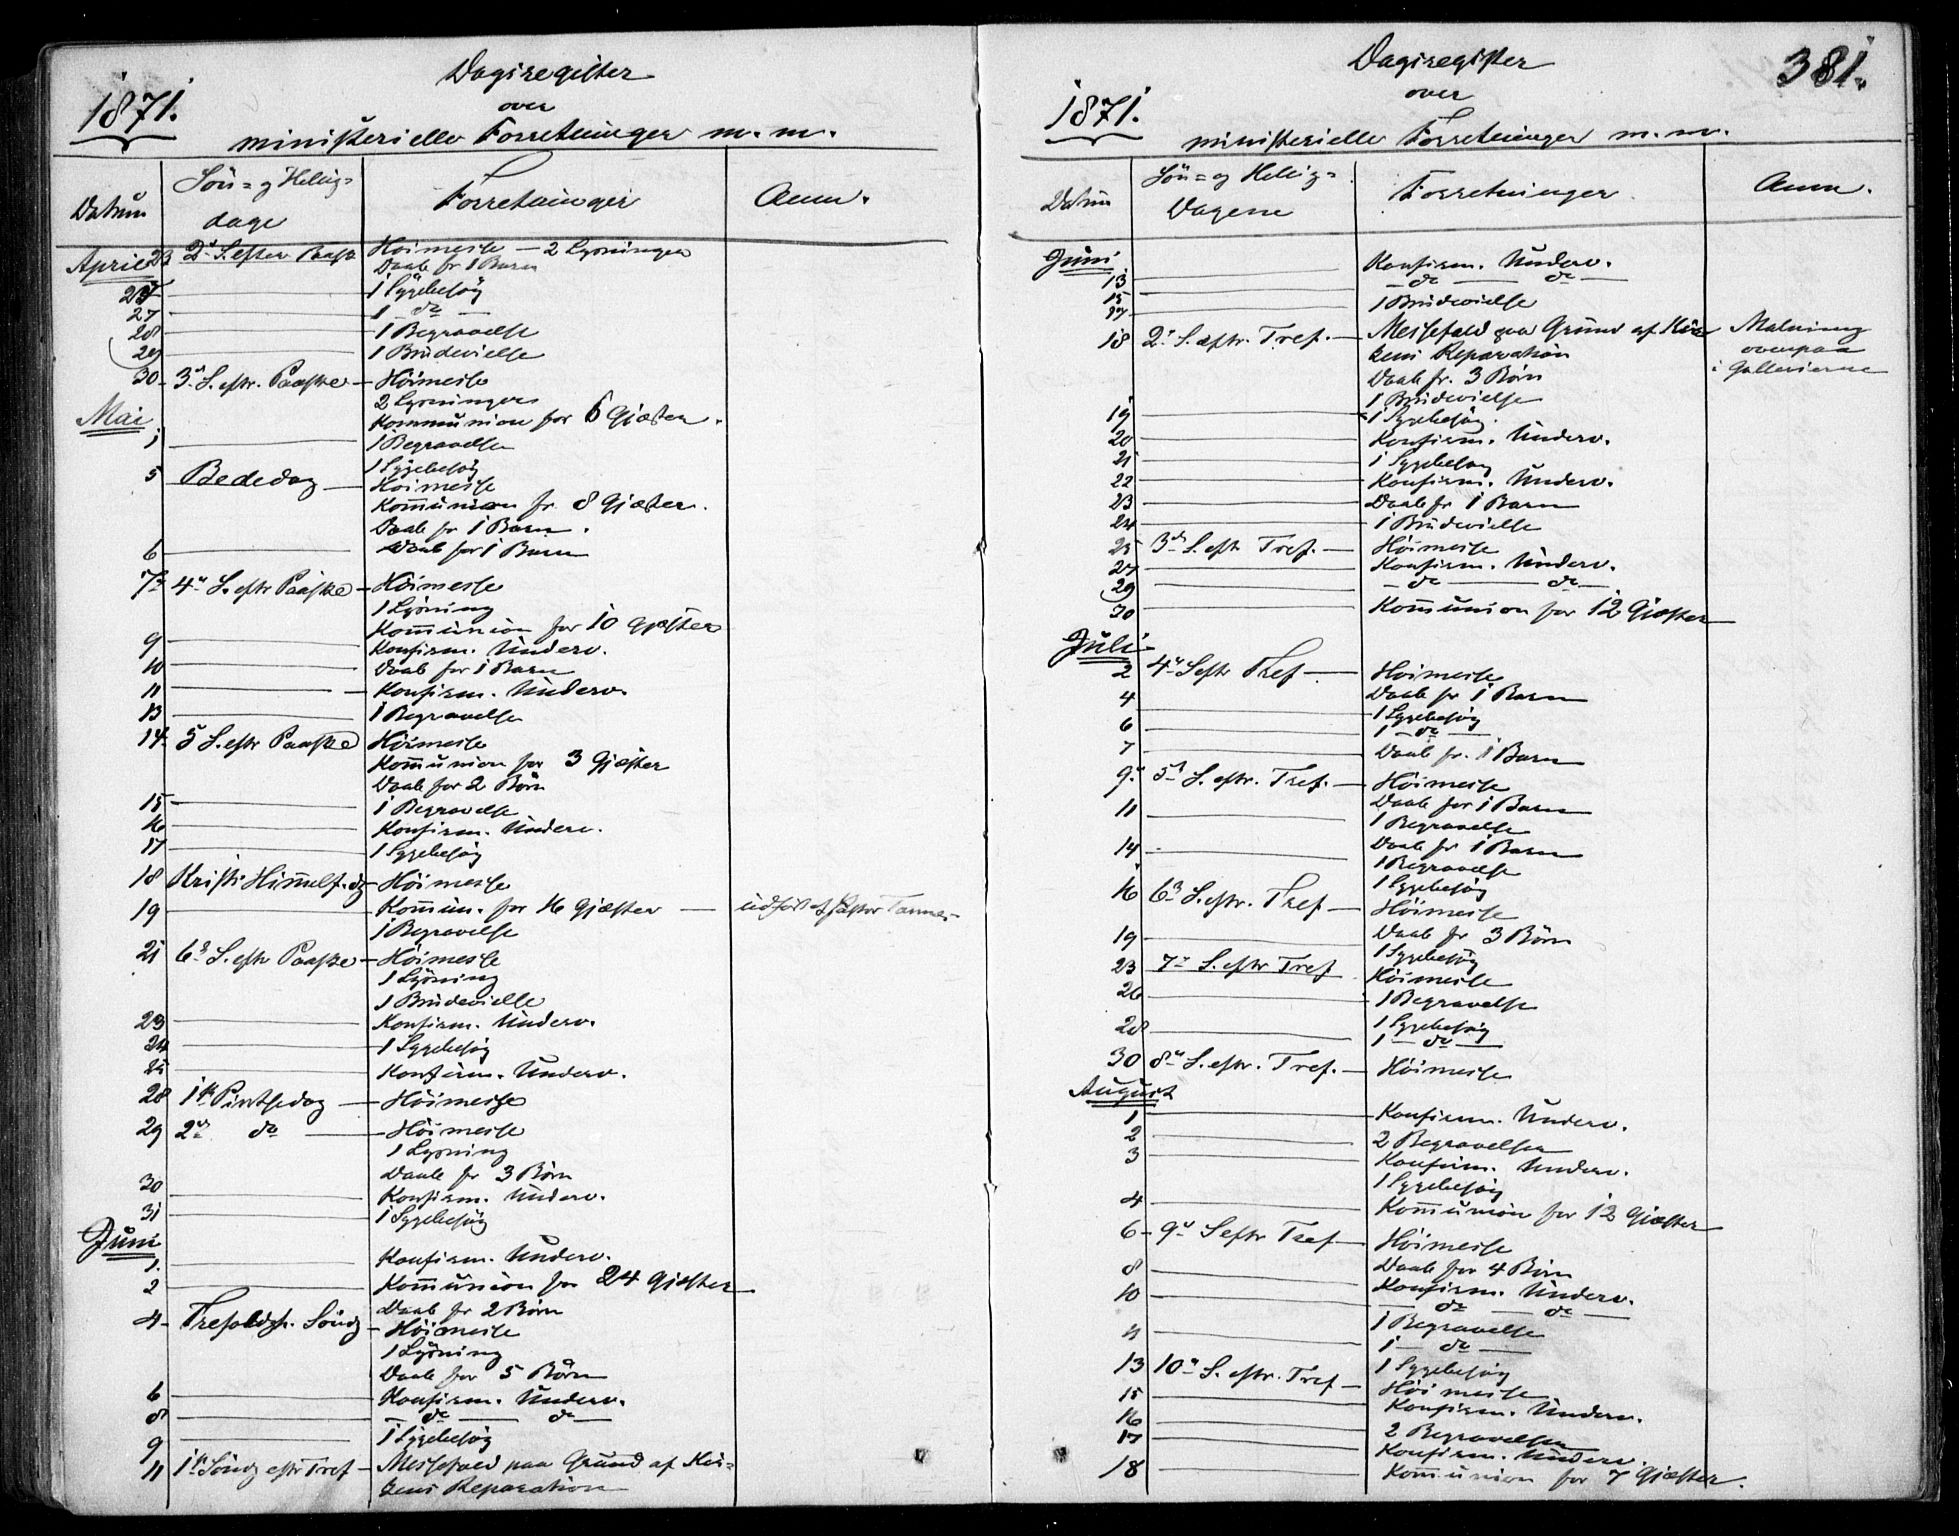 1871.
Dagsregister
over
ministerielle Forretninger m. m.
Datum
Søn- og Hellig-
dage
Forretninger
Anm.
April 23 2d S. efter Paaske Høimesse — 2 Lysninger
Daab for 1 Barn
25 1 Sygebesøg
27 1 do
28 1 Begravelse
29 1 Brudevielse
30 3d S. eftr. Paaske Høimesse
2 Lysninger
Kommunion for 6 Gjæster.
Mai
1 1 Begravelse
1 Sygebesøg
5 Bededag Høimesse
Kommunion fr. 8 Gjæster.
Daab for 1 Barn.
6 Daab for 1 Barn
7 4d S. eftr Paaske Høimesse
1 Lysning
Kommunion for 10 Gjæster
9 Konfirm. Underv.
10 Daab for 1 Barn
11 Konfirm. Underv.
13 1 Begravelse
14 5 S. eftr Paaske Høimesse
Kommunion for 3 Gjæster
Daab for 2 Børn
15 1 Begravelse
16 Konfirm. Underv.
17 1 Sygebesøg
18 Kristi Himmelf. dg Høimesse
19 Kommun. for 16 Gjæster — udført af Pastor
1 Begravelse
21 6d S. eftr Paaske Høimesse
1 Lysning
1 Brudevielse
23 Konfirm. Underv.
24 1 Sygebesøg
25 Konfirm. Underv.
28 1st Pintsedag Høimesse
29 2d do Høimesse
1 Lysning
Daab fr 3 Børn
30 Konfirm. Underv.
31 1 Sygebesøg
Juni
1. Konfirm. Underv.
2 Kommunion for 24 Gjæster
Daab fr 2 Børn
4 Trefoldgh. Søndg Høimesse
1 Lysning
Daab for 5 Børn
6 Konfirm. Underv.
8 do do
9 1 Sygebesøg
11 1st Søndg eftr Tref Messefald paa Grund af Kir-
kens Reparation
381.
1871.
Dagsregister
over
ministerielle Forretninger m. m.
Datum
Søn- og Hellig-
Dagene
Forretninger.
Anm.
Juni
13 Konfirm. Underv.
15 do do
17 1 Brudevielse
18 2d S. eftr. Tref. Messefald paa Grund af Kir Malning
kens Reparation ovenpaa
Daab fr. 3 Børn i Gallerierne
1 Brudevielse
19 1 Sygebesøg.
20 Konfirm. Underv.
21 1 Sygebesøg
22 Konfirm. Underv.
23 Daab fr 1 Barn
24 1 Brudevielse
25 3d S. eft Tref. Høimesse
27 Konfirm. Underv.
29 do do
30 Kommunion for 12 Gjæster
Juli
2 4d S eftr Tref Høimesse
4 Daab fr 1 Barn
1 Sygebesøg
6 1 do
7 Daab fr. 1 Barn
9 5d S. eftr. Tref. Høimesse
Daab for 1 Barn
11 1 Begravelse
Daab fr 1 Barn
14 1 Begravelse
1 Sygebesøg
16 6d S. eftr. Tref Høimesse
Daab fr 3 Børn
19 1 Sygebesøg
23 7d S. eftr Tref Høimesse
26 1 Begravelse
1 Sygebesøg
28 1 do
30 8d S. eftr. Tref. Høimesse
August
1 Konfirm. Underv.
2 2 Begravelser
3 Konfirm. Underv.
1 Sygebesøg
4 Kommunion for 12 Gjæster
6 9d S eftr Tref Høimesse
Daab for 4 Børn
8 Konfirm. Underv.
10 do do
1 Begravelse
11 1 do
1 Sygebesøg
13 10d S. eftr. Tref Høimesse
15 Konfirm. Underv.
16 2 Begravelser
17 Konfirm. Underv.
18 Kommunion for 7 Gjæster.